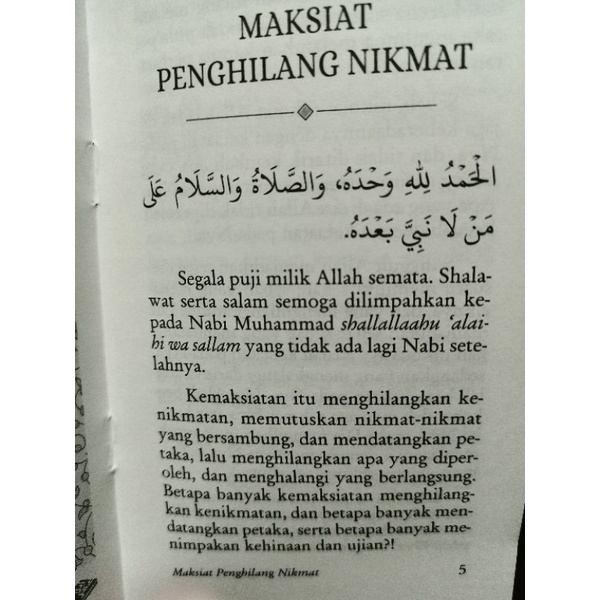 MAKSIAT
PENGHILANG NIKMAT
الْحَمْدُ لِلّٰهِ وَحْدَهُ، وَالصَّلَاةُ وَالسَّلَامُ عَلَى
مَنْ لَا نَبِيَّ بَعْدَهُ.
Segala puji milik Allah semata. Shala-
wat serta salam semoga dilimpahkan ke-
pada Nabi Muhammad shallallaahu ‘alai-
hi wa sallam yang tidak ada lagi Nabi sete-
lahnya.
Kemaksiatan itu menghilangkan ke-
nikmatan, memutuskan nikmat-nikmat
yang bersambung, dan mendatangkan pe-
taka, lalu menghilangkan apa yang diper-
oleh, dan menghalangi yang berlangsung.
Betapa banyak kemaksiatan menghilang-
kan kenikmatan, dan betapa banyak men-
datangkan petaka, serta betapa banyak me-
nimpakan kehinaan dan ujian?!
Maksiat Penghilang Nikmat 5